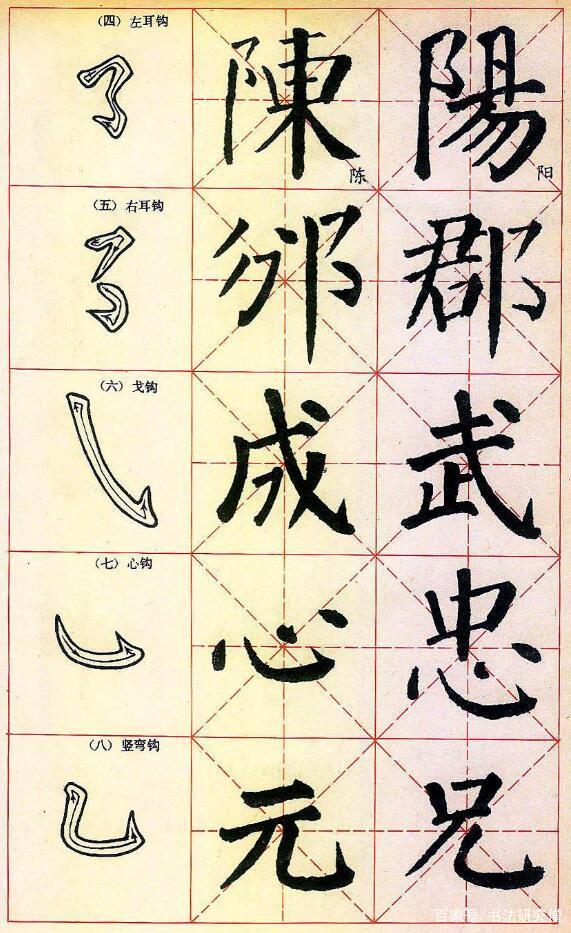 (四)左耳钩
陳 陈 陽 阳
(五)右耳钩
邠 郡
(六)戈钩
成 武
(七)心钩
心 忠
(八)竖弯钩
元 兄
百家号/书法研究馆